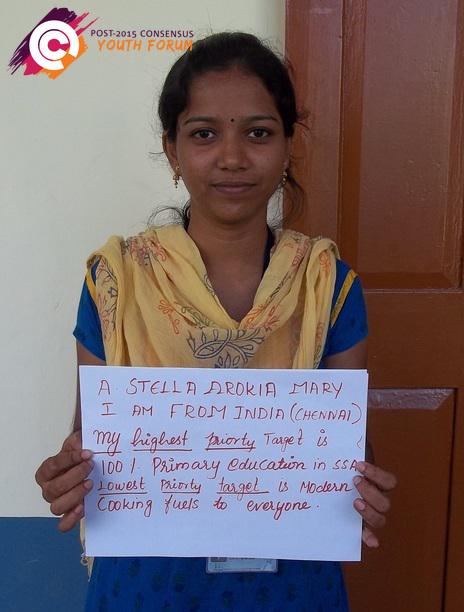 POST-2015 CONSENSUS
YOUTH FORUM
A. STELLA AROKIA MARY
I AM FROM INDIA (CHENNAI)
My highest priorty Target is
100%. Primary education in SSA
Lowest Priorty target is Modern
Cooking fuels to everyone.